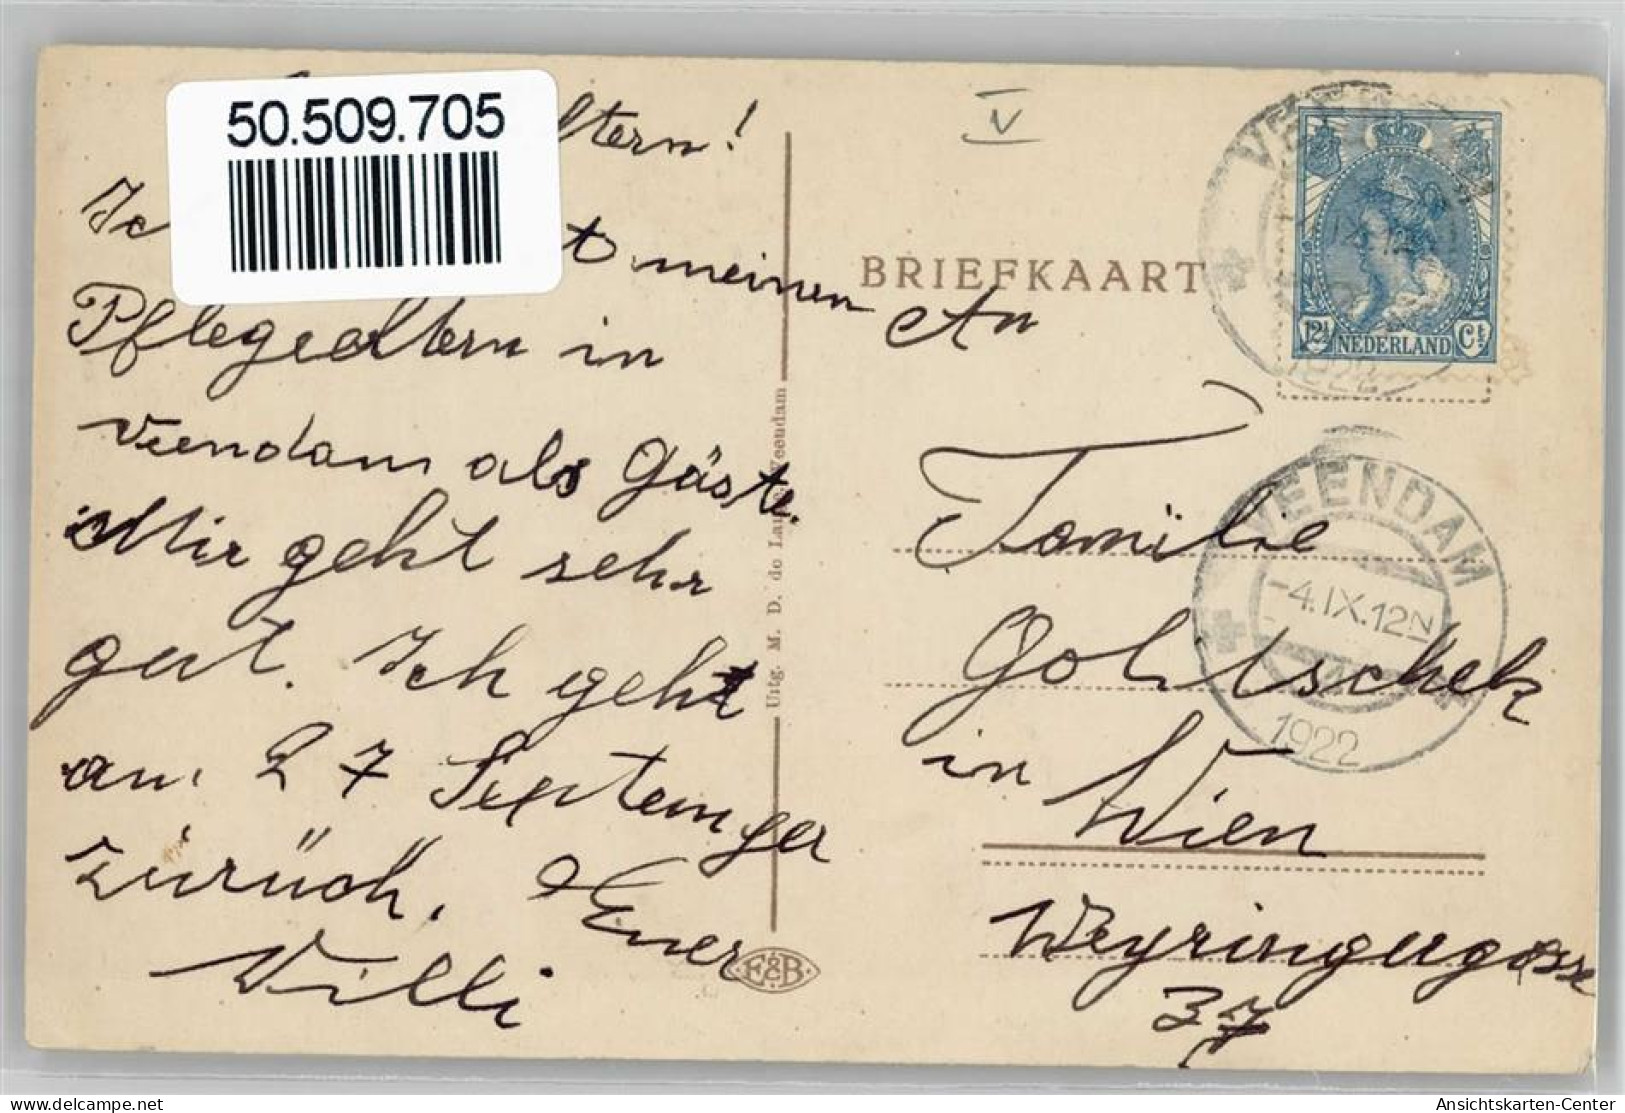 50.509.705
ltern!
Ic t meinen
Pflegeeltern in
Veendam als Gäste.
Mir geht sehr
gut. Ich geht
am 27 September
zurück. Euer
Willi
Uitg. M. D. de Lan Veendam
EgcB
V
BRIEFKAART
An
Familie
Goldschek
in Wien
Weyringergasse
37
12½ NEDERLAND Ct
1922
VEENDAM
-4.IX.12N
1922
delcampe.net
Ansichtskarten-Center